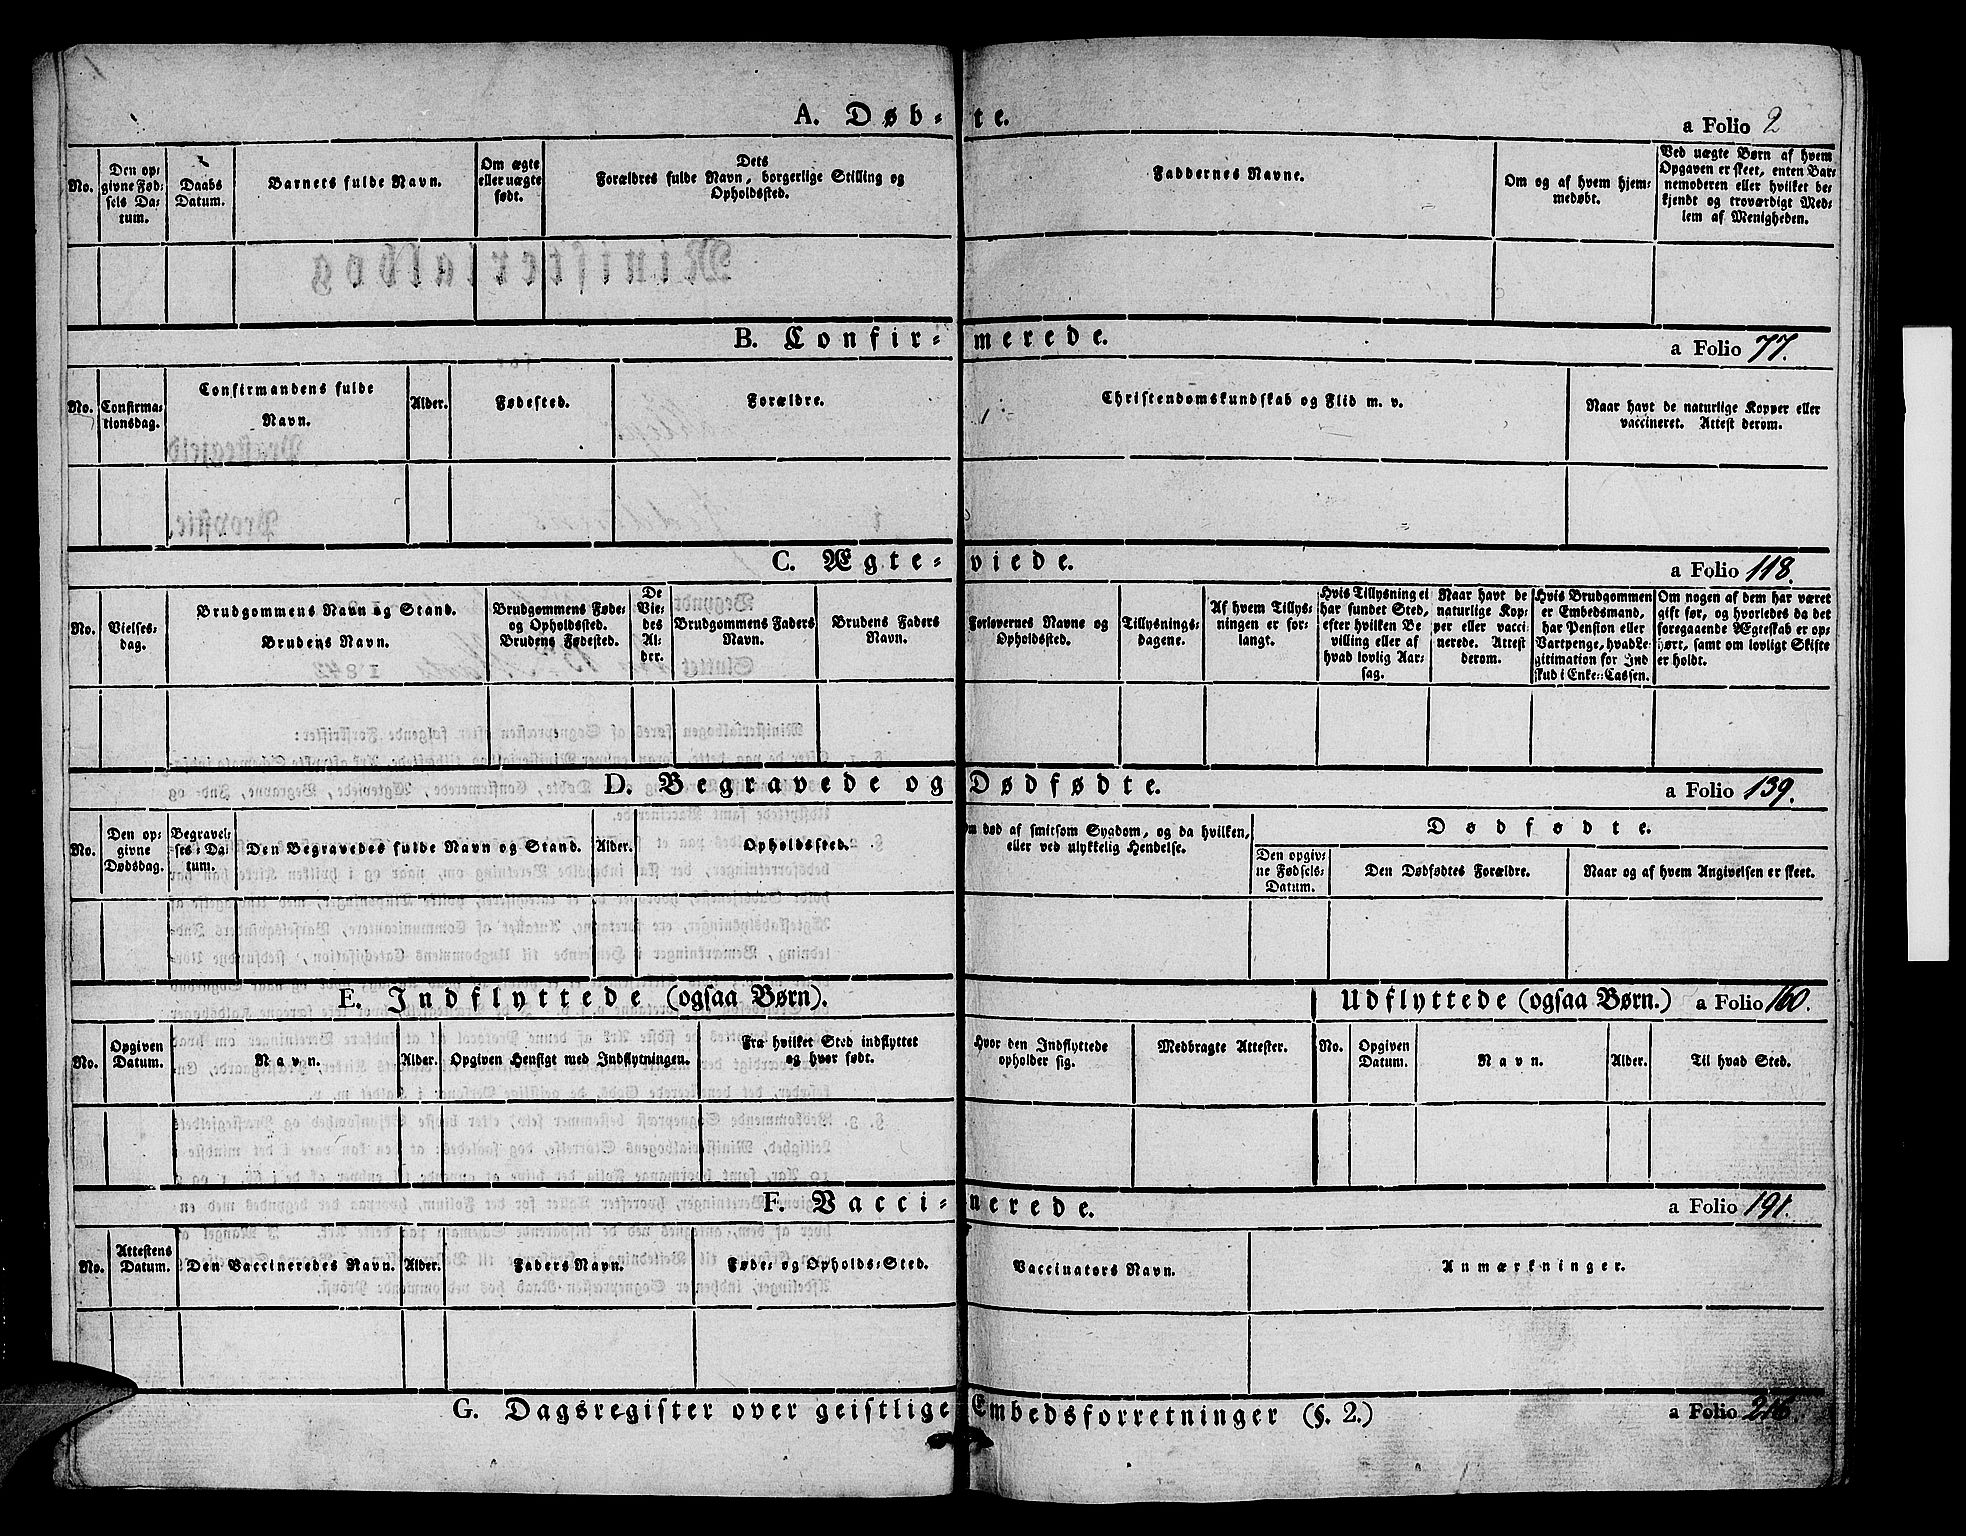 A. Døb- te.
a Folio 2
No.
Den op-
givne Fød-
sels Da-
tum.
Daabs
Datum.
Barnets fulde Navn.
Om ægte
eller uægte
født.
Dets
Forældres fulde Navn, borgerlige Stilling og
Opholdssted.
Faddernes Navne.
Om og af hvem hjem-
medøbt.
Ved uægte Børn af hvem
Opgaven er skeet, enten Bar-
nemoderen eller hvilket be-
kjendt og troværdigt Med-
lem af Menigheden.
Ministerialbog
B. Confir- merede.
a Folio 77.
No.
Confirma-
tionsdag.
Confirmandens fulde
Navn.
Alder.
Fødested.
Forældre.
Christendomskundskab og Flid m. v.
Naar havt de naturlige Kopper eller
vaccineret. Attest derom.
Præstegjeld
Provstie.
C. Ægte- viede.
a Folio 118.
No.
Vielses-
dag.
Brudgommens Navn og Stand.
Brudens Navn.
Brudgommens Føde-
og Opholdssted.
Brudens Fødested.
De
Vie-
des
Al-
der.
Brudgommens Faders
Navn.
Brudens Faders
Navn.
Forlovernes Navne og
Opholdssted.
Tillysnings-
dagene.
Af hvem Tillys-
ningen er for-
langt.
Hvis Tillysning ei
har fundet Sted,
efter hvilken Be
villing eller af
hvad lovlig Aar-
sag.
Naar havt de
naturlige Kop-
per eller vacci
nerede. Attest
derom.
Hvis Brudgommen
er Embedsmand,
har Pension eller
Vartpenge, hvad Le-
gitimation for Ind
skud i Enke-Cassen.
Om nogen af dem har været
gift før, og hvorledes da det
foregaaende Ægteskab er op-
hørt, samt om lovligt Skifte
er holdt.
D. Begravede og Dødfødte.
a Folio 139.
No.
Den op-
givne
Dødsdag.
Begravel-
ses-Da-
tum.
Den Begravedes fulde Navn og Stand.
Alder.
Opholdssted.
Om død af smitsom Sygdom, og da hvilken,
eller ved ulykkelig Hendelse.
Dødfødte.
Den opgiv-
ne Fødsels-
Datum.
Den Dødfødtes Forældre.
Naar og af hvem Angivelsen er skeet.
E. Indflyttede (ogsaa Børn).
Udflyttede (ogsaa Børn.) a Folio 160.
No.
Opgiven
Datum.
Navn.
Alder.
Opgiven Hensigt med Indflytningen.
Fra hvilket Sted indflyttet
og hvor født.
Hvor den Indflyttede
opholder sig.
Medbragte Attester.
No.
Opgiven
Datum.
Navn.
Alder.
Til hvad Sted.
F. Vacci- nerede.
a Folio 191.
No.
Attestens
Datum.
Den Vaccineredes Navn.
Alder.
Faders Navn.
Føde- og Opholds-Sted.
Vaccinators Navn.
Anmærkninger.
G. Dagsregister over geistlige Embedsforretninger (§. 2.)
a Folio 216.